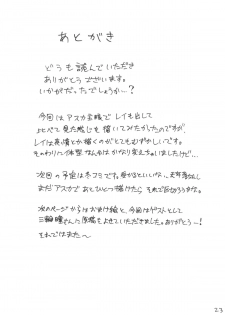 あとがき
どうも読んでいただき
ありがとうございます。
いかがだったでしょうか…?
今回はアスカ主眼でレイも出して
比べて見た感じも描いてみたかったのですが、
レイは表情とか描くのがとてもむずかしいです。
そのわりに体型なんかはかなり変えちゃいましたけど…
次回の予定は冬コミです。受かるといいな…
まだアスカであとひとつ描けたら それで区切ろうかな。
次のページからはおまけ絵と、今回はゲストとして
さんに原稿をよせていただきました。ありがとう〜!
それではまた〜
23